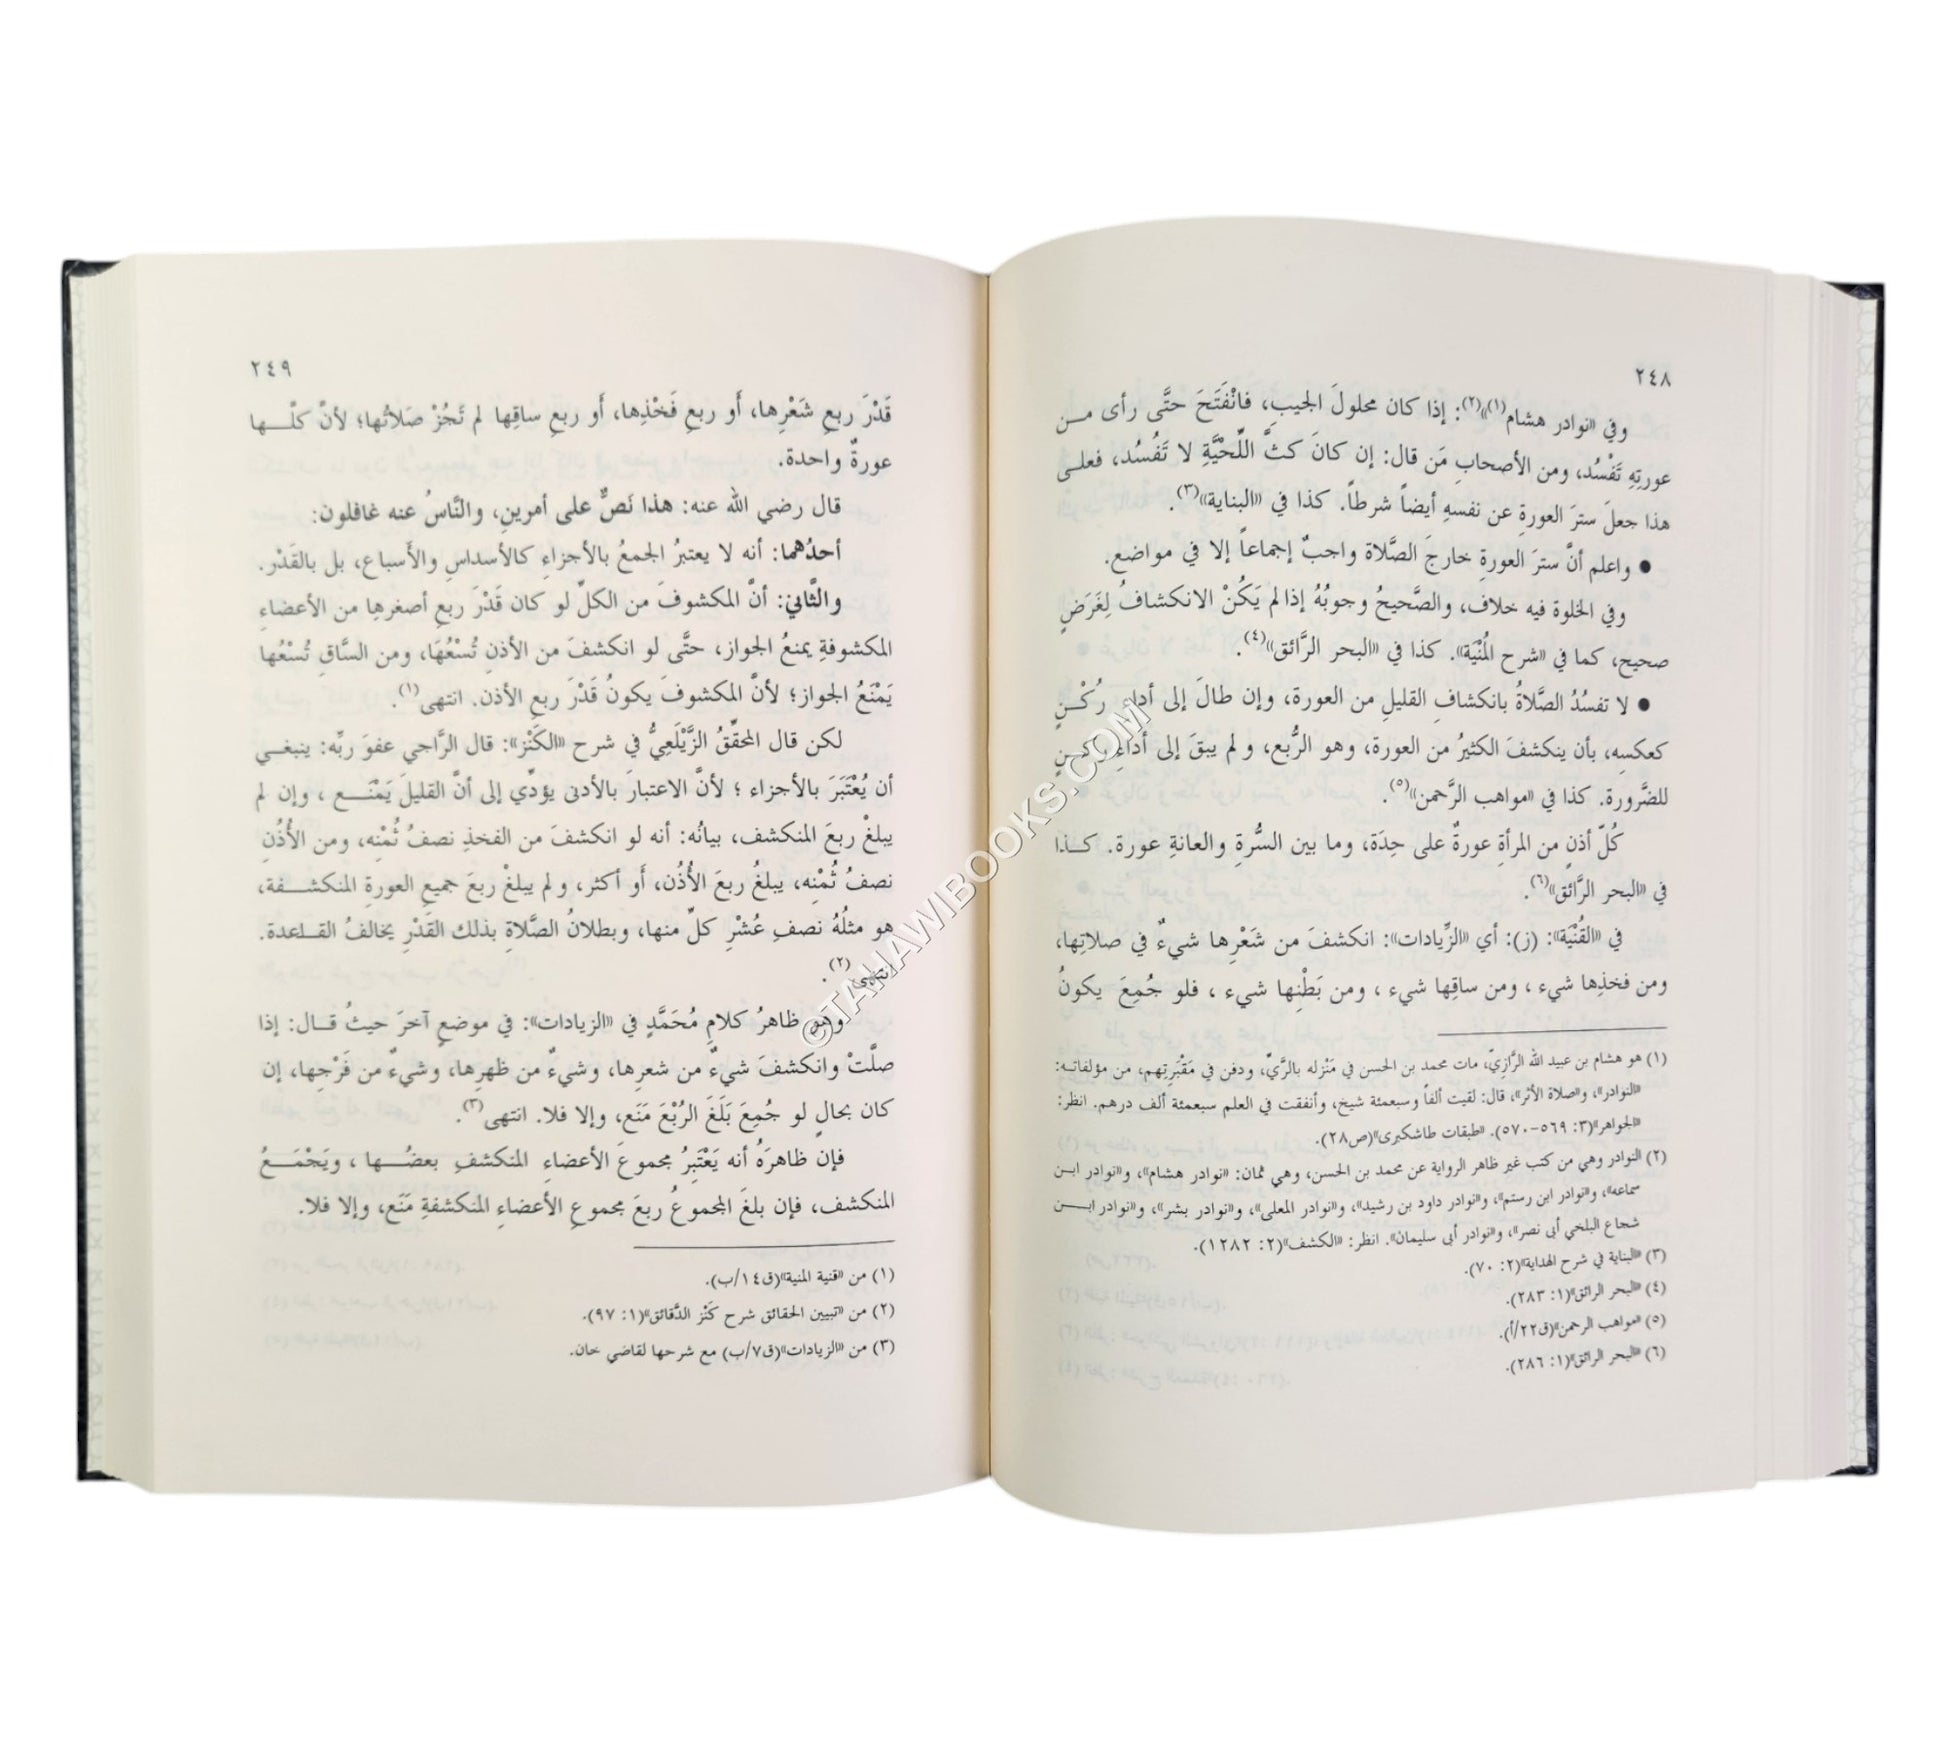 ٢٤٨
وفي «نوادر هشام(١)»(٢): إذا كان محلولَ الجيبِ، فانْفَتَحَ حتَّى رأى مـن
عورتِهِ تَفْسُد، ومن الأصحابِ مَن قال: إن كانَ كثَّ اللِّحْيَّةِ لا تَفْسُد، فعلـى
هذا جعلَ سترَ العورةِ عن نفسهِ أيضاً شرطاً. كذا في «البناية»(٣).
● واعلم أنَّ سترَ العورةِ خارجَ الصَّلاة واجبٌ إجماعاً إلا في مواضع.
وفي الخلوة فيه خلاف، والصَّحيحُ وجوبُهُ إذا لم يَكُنْ الانكشافُ لِغَرَضٍ
صحيح، كما في «شرح المُنْيَة». كذا في «البحر الرَّائق»(٤).
● لا تفسُدُ الصَّلاةُ بانكشافِ القليلِ من العورة، وإن طالَ إلى أداءِ رُكْـنٍ
كعكسِه، بأن ينكشفَ الكثيرُ من العورة، وهو الرُّبع، و لم يبقَ إلى أداءِ ركـنٍ
للضَّرورة. كذا في «مواهب الرَّحمن»(٥).
كُلّ أذنٍ من المرأةِ عورةٌ على حِدَة، وما بين السُّرةِ والعانةِ عورة. كـذا
في «البحر الرَّائق»(٦).
في «القُنْيَة»: (ز): أي «الزِّيادات»: انكشفَ من شَعْرِها شيءٌ في صلاتِها،
ومن فخذِها شيء ، ومن ساقِها شيء ، ومن بَطْنِها شيء ، فلو جُمِعَ يكونُ
(١) هو هشام بن عبيد الله الرَّازِيّ، مات محمد بن الحسن في مَنْزله بالرَّيّ، ودفن في مَقْبَرتِهم، من مؤلفاتـه:
«النوادر»، و«صلاة الأثر»، قال: لقيت ألفاً وسبعمئة شيخ، وأنفقت في العلم سبعمئة ألف درهم. انظر:
«الجواهر»(٣: ٥٦٩-٥٧٠). «طبقات طاشكبرى»(ص٢٨).
(٢) النوادر وهي من كتب غير ظاهر الرواية عن محمد بن الحسن، وهي ثمان: «نوادر هشام»، و«نوادر ابـن
سماعه»، و«نوادر ابن رستم»، و«نوادر داود بن رشيد»، و«نوادر المعلى»، و«نوادر بشر»، و«نوادر ابـن
شجاع البلخي أبى نصر»، و«نوادر أبى سليمان». انظر: «الكشف»(٢: ١٢٨٢).
(٣) «البناية في شرح الهداية»(٢: ٧٠).
(٤) «البحر الرائق»(١: ٢٨٣).
(٥) «مواهب الرحمن»(ق٢٢/أ).
(٦) «البحر الرائق»(١: ٢٨٦).
٢٤٩
قَدْرَ ربعِ شَعْرِها، أَو ربعِ فَخْذِها، أَو ربعِ ساقِها لم تَجُزْ صَلاتُها؛ لأنّ كلّـها
عورةٌ واحدة.
قال رضي الله عنه: هذا نَصٌّ على أمرينِ، والنَّاسُ عنه غافلون:
أحدُهما: أنه لا يعتبرُ الجمعُ بالأجزاءِ كالأسداسِ والأَسباع، بل بالقَدْر.
والثَّاني: أنَّ المكشوفَ من الكلِّ لو كان قَدْرَ ربعِ أصغرِها من الأعضاءِ
المكشوفةِ يمنعُ الجواز، حتَّى لو انكشفَ من الأذنِ تُسْعُهَا، ومن السَّاقِ تُسْعُها
يَمْنَعُ الجواز؛ لأنَّ المكشوفَ يكونُ قَدْرَ ربعِ الأذن. انتهى(١).
لكن قال المحقِّقُ الزَّيْلَعِيُّ في شرح «الكَنْز»: قال الرَّاجي عفوَ ربِّه: ينبغـي
أن يُعْتَبَرَ بالأجزاء ؛ لأنَّ الاعتبارَ بالأدنى يؤدِّي إلى أنَّ القليلَ يَمْنَـع ، وإن لم
يبلغْ ربعَ المنكشف، بيانُه: أنه لو انكشفَ من الفخذِ نصفُ ثُمْنِه، ومن الأُذُنِ
نصفُ ثُمْنِه، يبلغُ ربعَ الأُذُن، أَو أكثر، و لم يبلغْ ربعَ جميعِ العورةِ المنكشـفة،
هو مثلُهُ نصفِ عُشْرِ كلِّ منها، وبطلانُ الصَّلاةِ بذلك القَدْرِ يخالفُ القـاعدة.
انتهى(٢).
وهو ظاهرُ كلامِ مُحَمَّدٍ في «الزيادات»: في موضعٍ آخرَ حيثُ قـال: إذا
صلَّتْ وانكشفَ شيءٌ من شعرِها، وشيءٌ من ظهرِها، وشيءٌ من فَرْجِها، إن
كان بحالٍ لو جُمِعَ بَلَغَ الرُبْعَ مَنَع، وإلا فلا. انتهى(٣).
فإن ظاهرَهُ أنه يَعْتَبِرُ مجموعَ الأعضاءِ المنكشفِ بعضُـها ، ويَجْمَـعُ
المنكشف، فإن بلغَ المجموعُ ربعَ مجموعِ الأعضاءِ المنكشفةِ مَنَع، وإلا فلا.
(١) من «قنية المنية»(ق١٤/ب).
(٢) من «تبيين الحقائق شرح كَنْز الدَّقائق»(١: ٩٧).
(٣) من «الزيادات»(ق٧/ب) مع شرحها لقاضي خان.
©TAHAWIBOOKS.COM